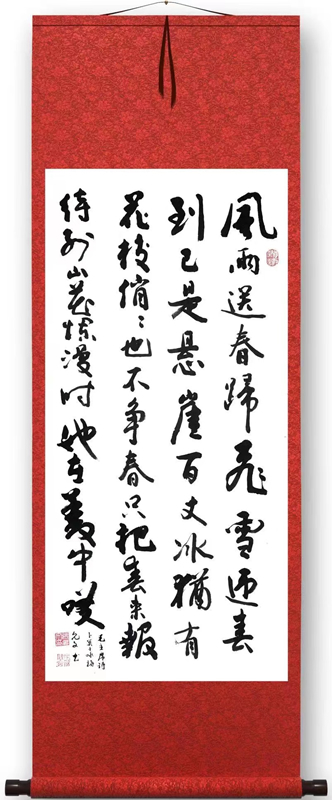 風雨送春歸飛雪迎春
到已是悬崖百丈冰猶有
花枝俏：也不争春只把春来報
待到山花爛漫时她在叢中咲
毛主席詩
卜算子咏梅